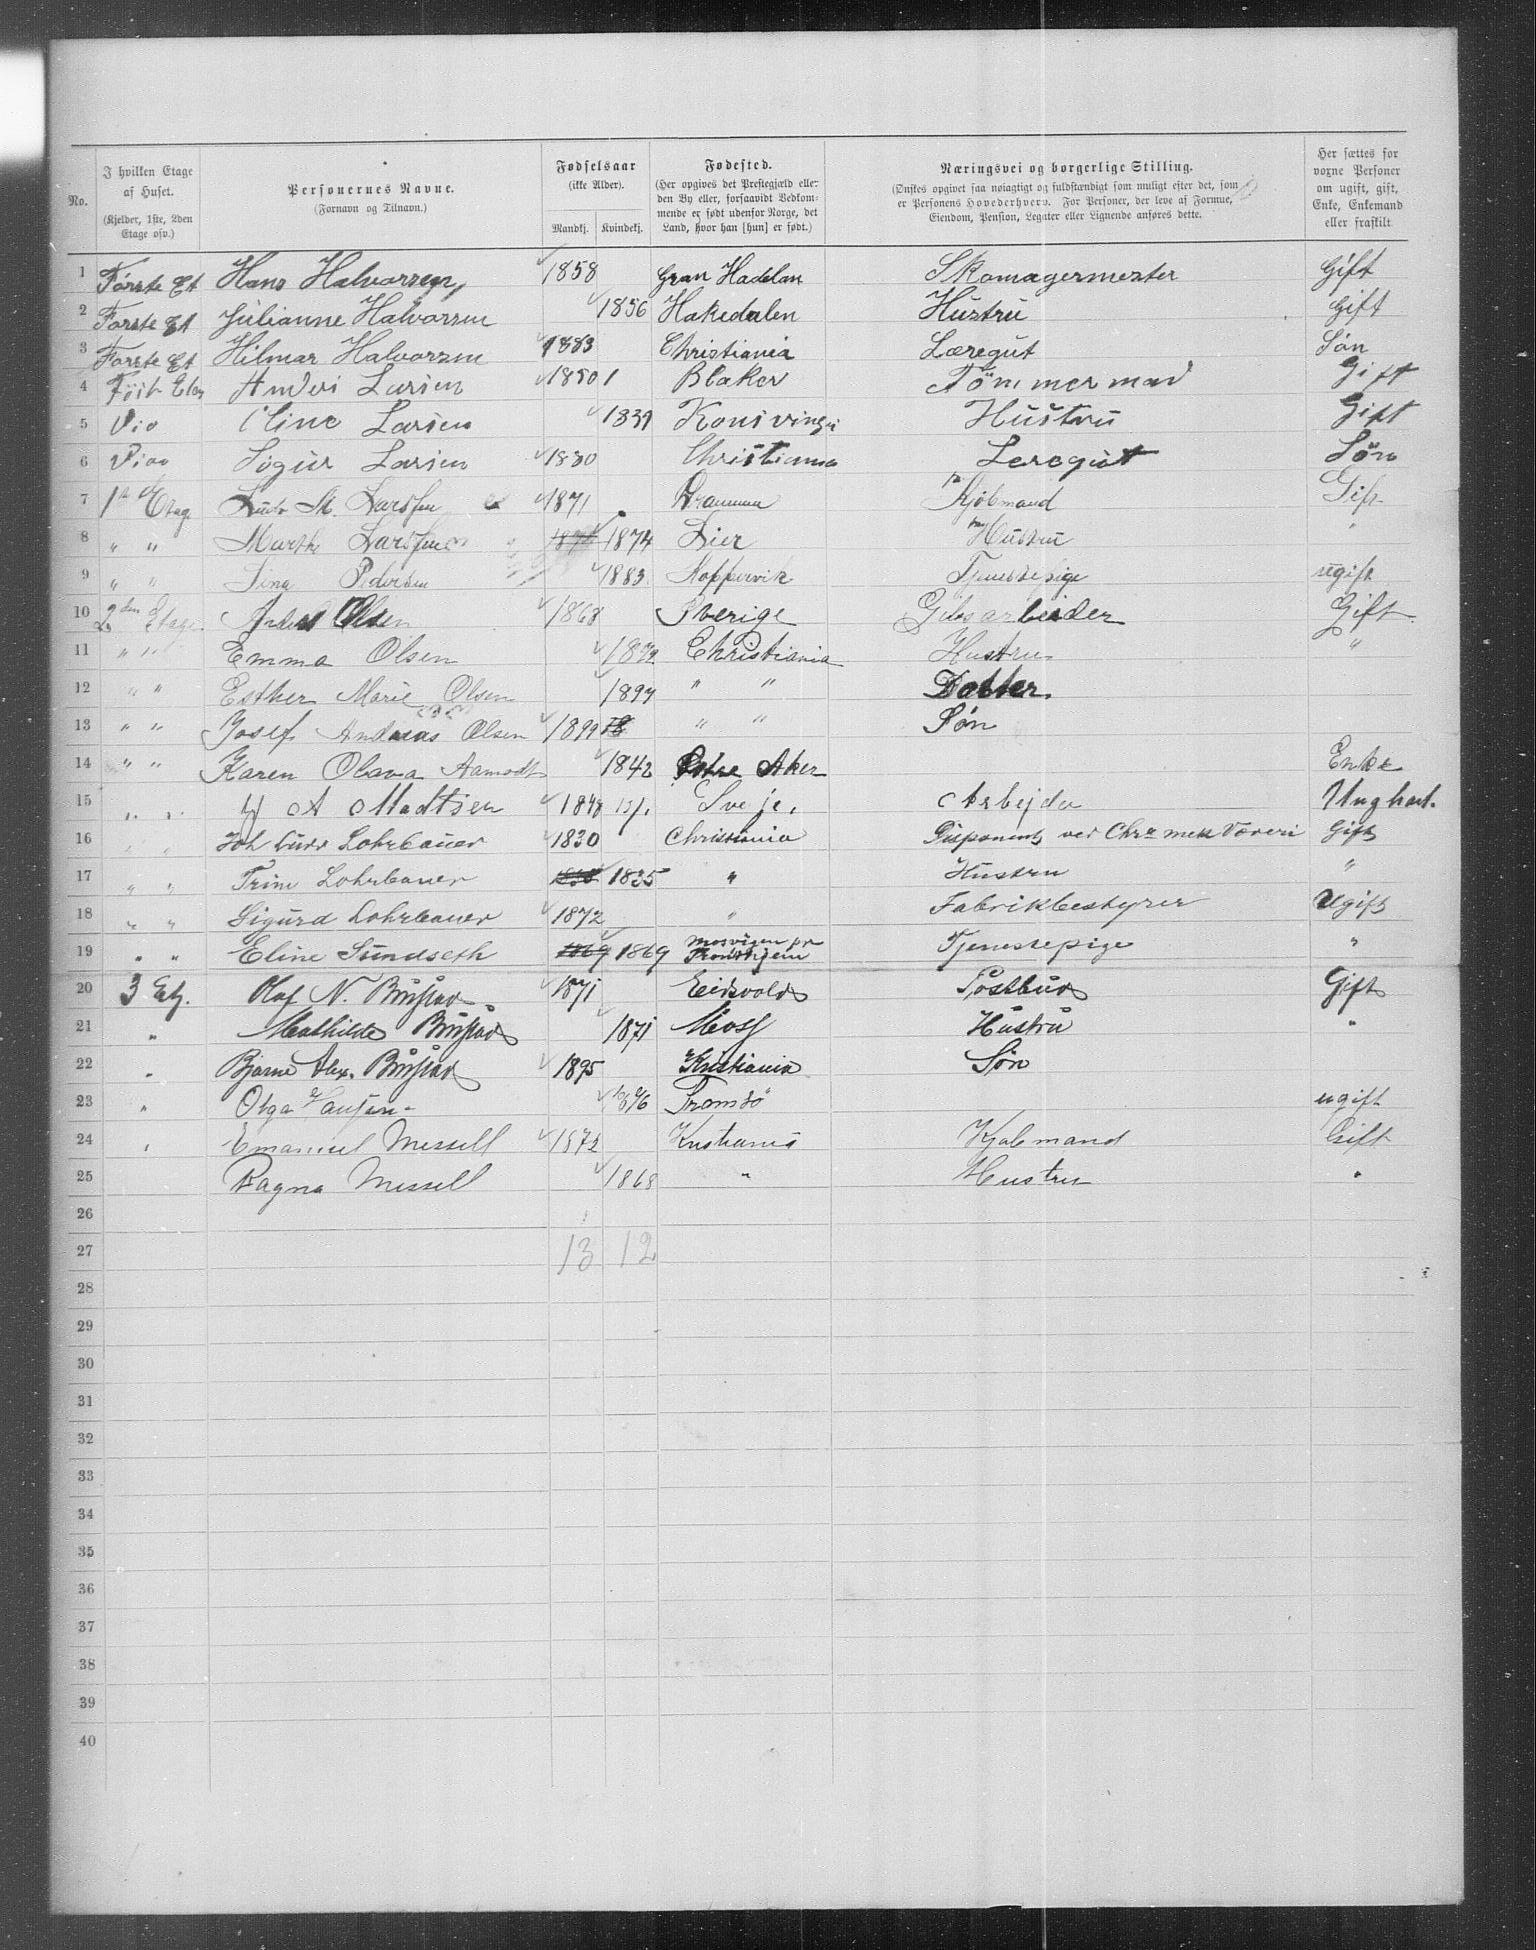 No. | I hvilken Etage af Huset. (Kjelder, 1ste, 2den Etage osv.) | Personernes Navne. (Fornavn og Tilnavn.) | Fødselsaar (ikke Alder). Mandkj. Kvindekj. | Fødested. (Her opgives det Prestegjæld eller den By eller, forsaavidt Vedkommende er født udenfor Norge, det Land, hvor han [hun] er født.) | Næringsvei og borgerlige Stilling. (Ønskes opgivet saa nøiagtigt og fuldstændigt som muligt efter det, som er Personens Hovederhverv. For Personer, der leve af Formue, Eiendom, Pension, Legater eller Lignende anføres dette.) | Her sættes for voxne Personer om ugift, gift, Enke, Enkemand eller fraskilt.
1 Første Et Hans Halvorsen 1858 Gran Hadelan Skomagermester Gift
2 Første Et Julianne Halvorsen 1856 Hakedalen Hustru Gift
3 Første Et Hilmar Halvorsen 1883 Christiania Læregut Søn
4 Anders Larsen 1850 Blaker Tömmermand Gift
5 Dio Oline Larsen 1839 Konsvinger Hustru Gift
6 Sigur Larsen Christiania Leregut Sön
7 1st Etag. Ludv. M. Larssen 1871 Drammen Kjøbmand Gift
8 " " Marthe Larssen 1874 Lier Hustru "
9 " " Sina Pedersen 1883 Koppervik Tjenestepige ugift
10 2den Etage Anders Olsen 1868 Sverige Gulsarbeider Gift
11 " " Emma Olsen 1872 Christiania Hustru "
12 " " Esther Marie Olsen 1897 " " Datter.
13 " " Josef Andreas Olsen 1899 " " Søn
14 " " Karen Olava Aamodt 1842 Østre Aker Enke
15 " " A Madtsen 1848 15/1. Sveje. Arbejder Unghart.
16 " " Joh Ludv Lohrbauer 1830 Christiania Disponent ved Chra mek Væveri Gift
17 " " Trine Lohrbauer 1835 " Hustru "
18 " " Sigurd Lohrbauer 1872 " Fabrikbestyrer Ugift
19 " " Eline Sundseth 1869 1869 Mosvigen pr Trondhjem Tjenestepige "
20 3 Etg. Olaf N. Bustad 1871 Eidsvold Postbud Gift
21 " Mathilde Bustad 1871 Moss Hustru "
22 " Bjarne Alex. Bustad 1895 Kristiania Søn
23 " Olga Hansen Tromsö ugift
24 " Emanuel Messell 1872 Kristiania Kjøbmand Gift
25 Ragna Messell 1868 " Hustru "
26
27 13 12
28
29
30
31
32
33
34
35
36
37
38
39
40